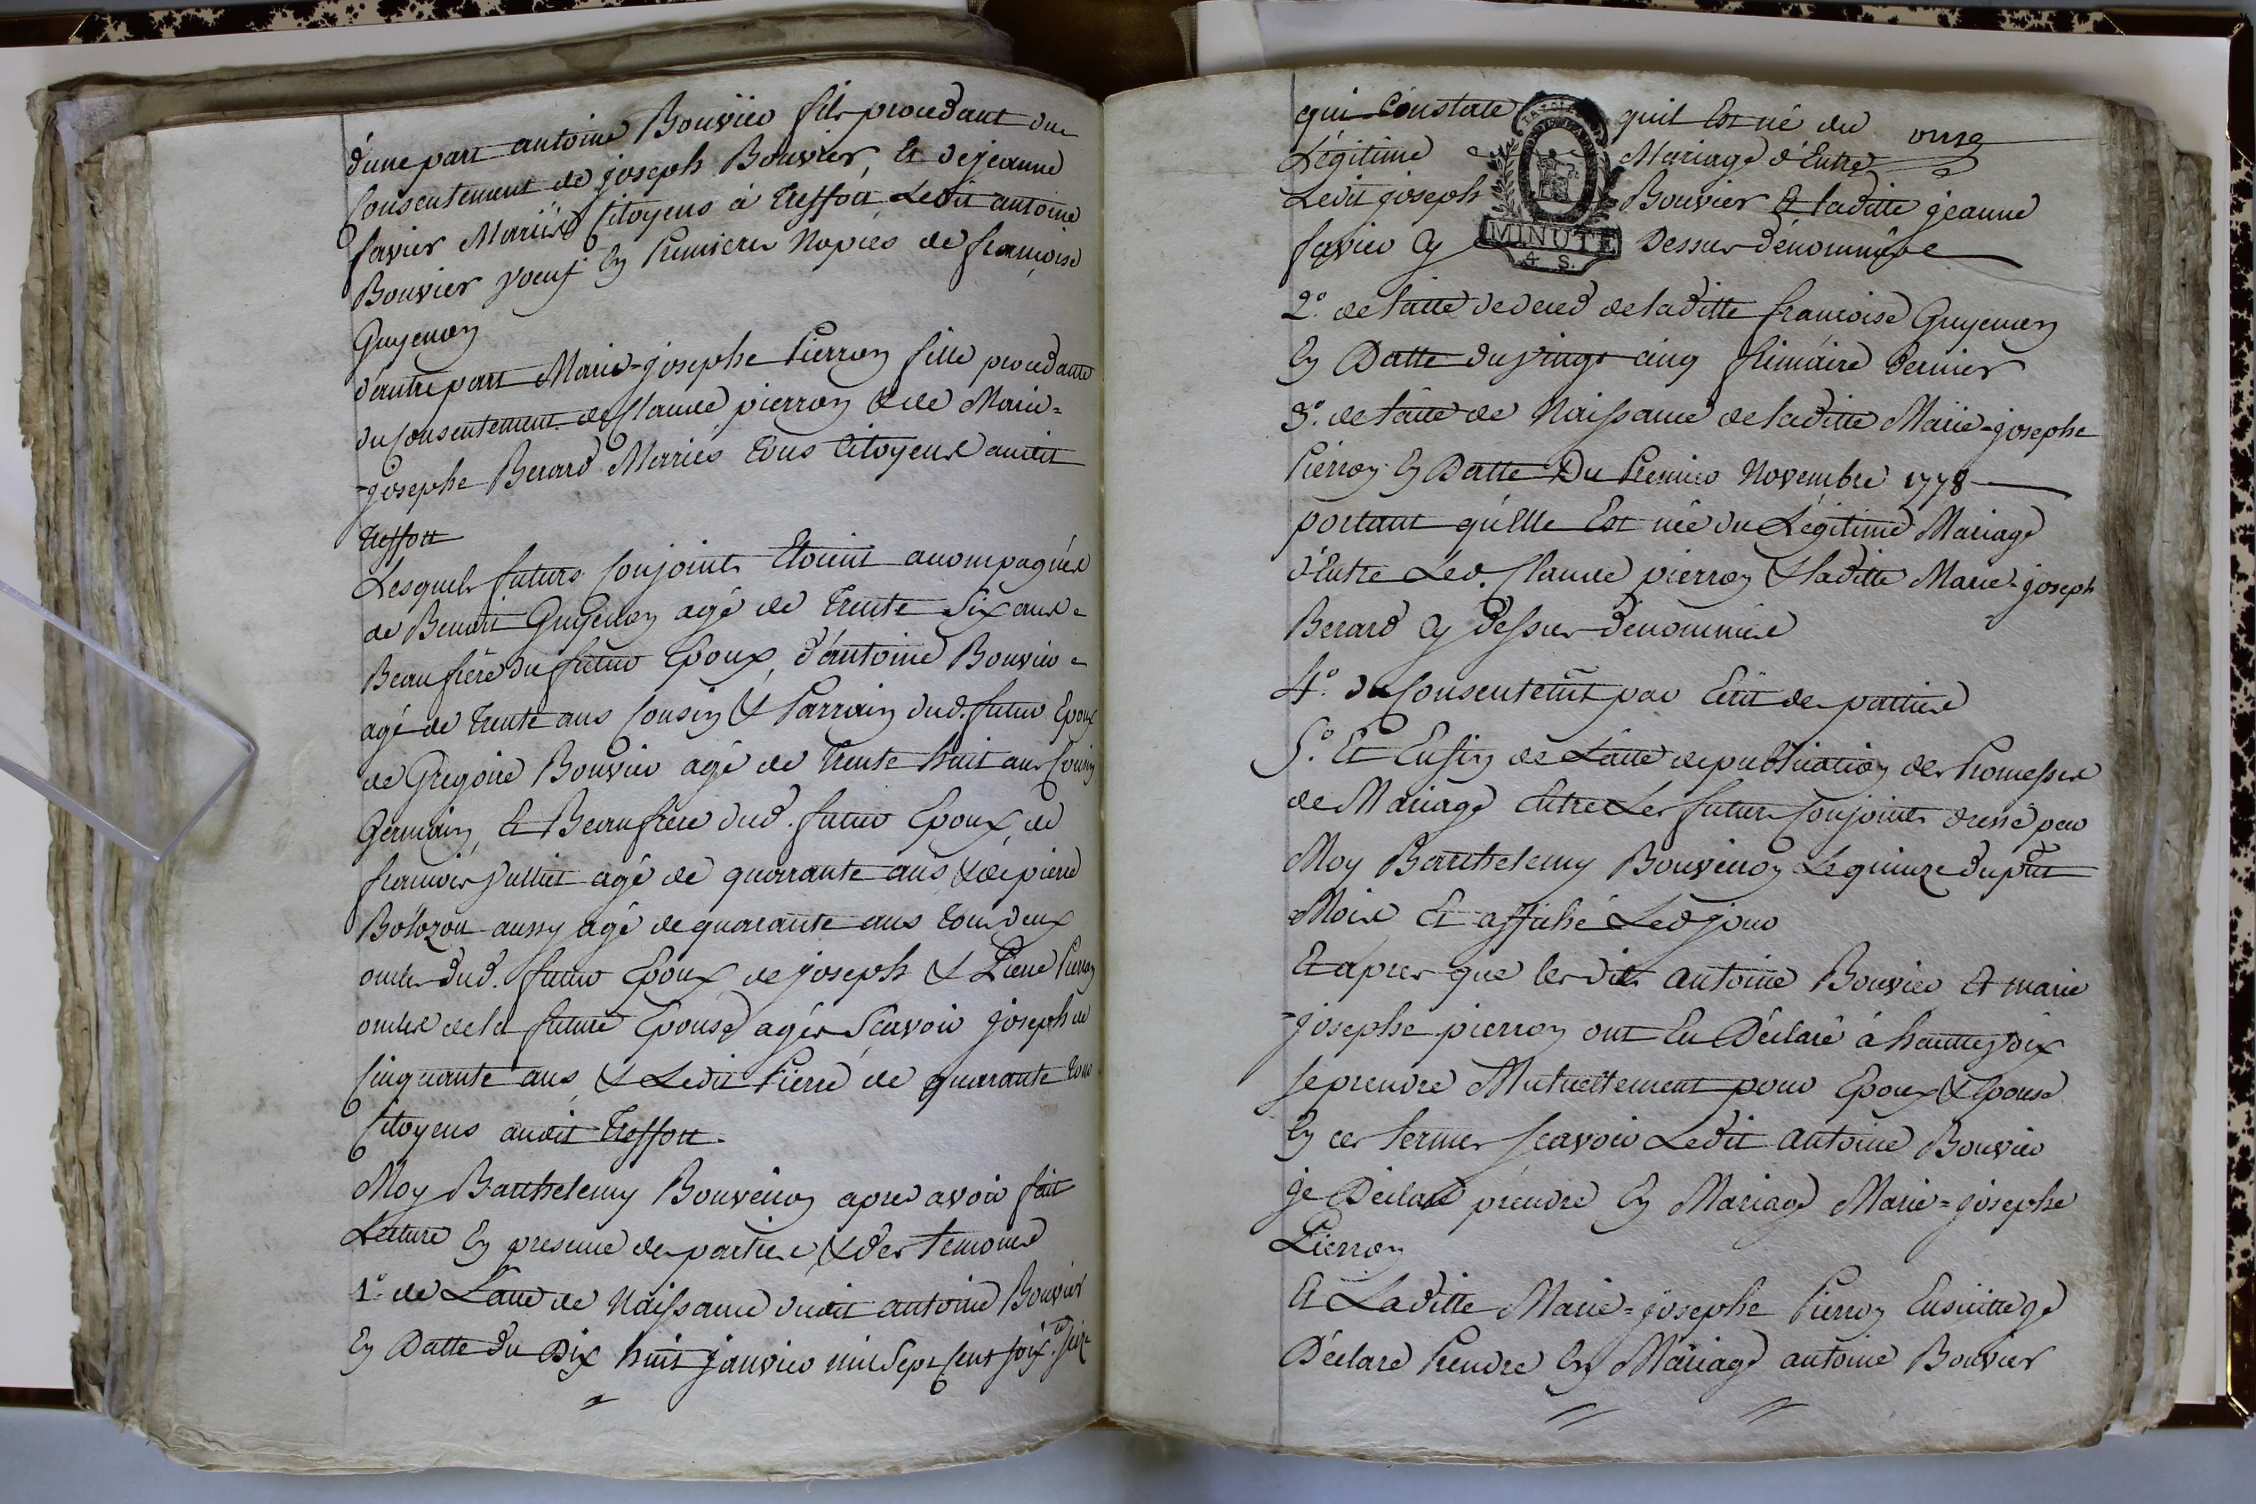 d'une part antoine Bouvier fils procedant du
Consentement de joseph Bouvier, Et de jeanne
favier Mariés Citoyens à Treffort Ledit antoine
Bouvier voeuf En Premieres Nopces de françoise
Guyenon
d'autre part Marie-josephe Pierron fille procedante
du Consentement de Claude pierron & de Marie=
-josephe Berard Mariés tous Citoyens audit
Treffort
Lesquels futurs Conjoints Etoient accompagnés
de Benoit Guyenon agé de trente Six ans
Beaufrère du futur Epoux, d'antoine Bouvier
agé de trente ans Cousin & Parrain dud. futur Epoux
de Gregoire Bouvier agé de trente huit ans Cousin
Germain, Et Beaufrère dud. futur Epoux, de
francois julliet agé de quarante ans & de pierre
Bolozon aussy agé de quarante ans tous deux
oncles dud. futur Epoux, de joseph & Pierre Pierron
oncles de la future Epouse agés Scavoir joseph de
Cinquante ans, & Ledit Pierre de quarante tous
Citoyens audit Treffort.
Moy Barthelemy Bouveiron apres avoir fait
Lecture En presence des parties & des temoins
1º. de L'acte de Naissance dudit antoine Bouvier
En Datte du Dix huit janvier mil Sept Cent soix.te seize
onze
qui Constate quil Est né du
Légitime Mariage d'Entre
Ledit joseph Bouvier Et laditte jeanne
favier Cy Dessus dénommés
MINUTE
4 S.
2º. de l'acte de deces de laditte francoise Guyenon
En Datte du vingt cinq frimaire dernier
3º. de l'acte de Naissance de laditte Marie-josephe
Pierron En Datte Du Premier Novembre 1778
portant qu'Elle Est née du Légitime Mariage
d'Entre Led. Claude pierron & laditte Marie-joseph
Berard Cy dessus dénommés
4º. du Consentemt par Ecrit des parties
5º. Et Enfin de L'acte de publication des Promesses
de Mariage Entre Les futurs Conjoints dressé par
Moy Barthelemy Bouveiron Le quinze du pnt
Mois Et affiché Led jour
Et apres que lesdits antoine Bouvier Et marie
-josephe pierron ont Eu Déclaré à hautte voix
se prendre Mutuellement pour Epoux & Epouse
En ces termes scavoir Ledit antoine Bouvier
je Déclare prendre En Mariage Marie=josephe
Pierron
Et Laditte Marie=josephe Pierron Ensuitte je
Déclare Prendre En Mariage antoine Bouvier